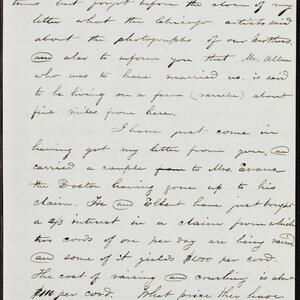 times but forgot before the storm of my
letter what the Chicago artists said
about the photographs of our brothers.
and also to inform you that Mr. Allen
who was to have married us. is said
to be living on a farm (ranche) about
five miles from here.
I have just come in
having got my letter from you, and
carried a couple to Mrs. Evans
the Doctor having gone up to his
claim. He and Elbert have just bought
a 2/3 interest in a claim from which
two cords of ore per day are being raised
and some of it yields $1,000 per cord.
The cost of raising and crushing is about
$100 per cord. What price they have